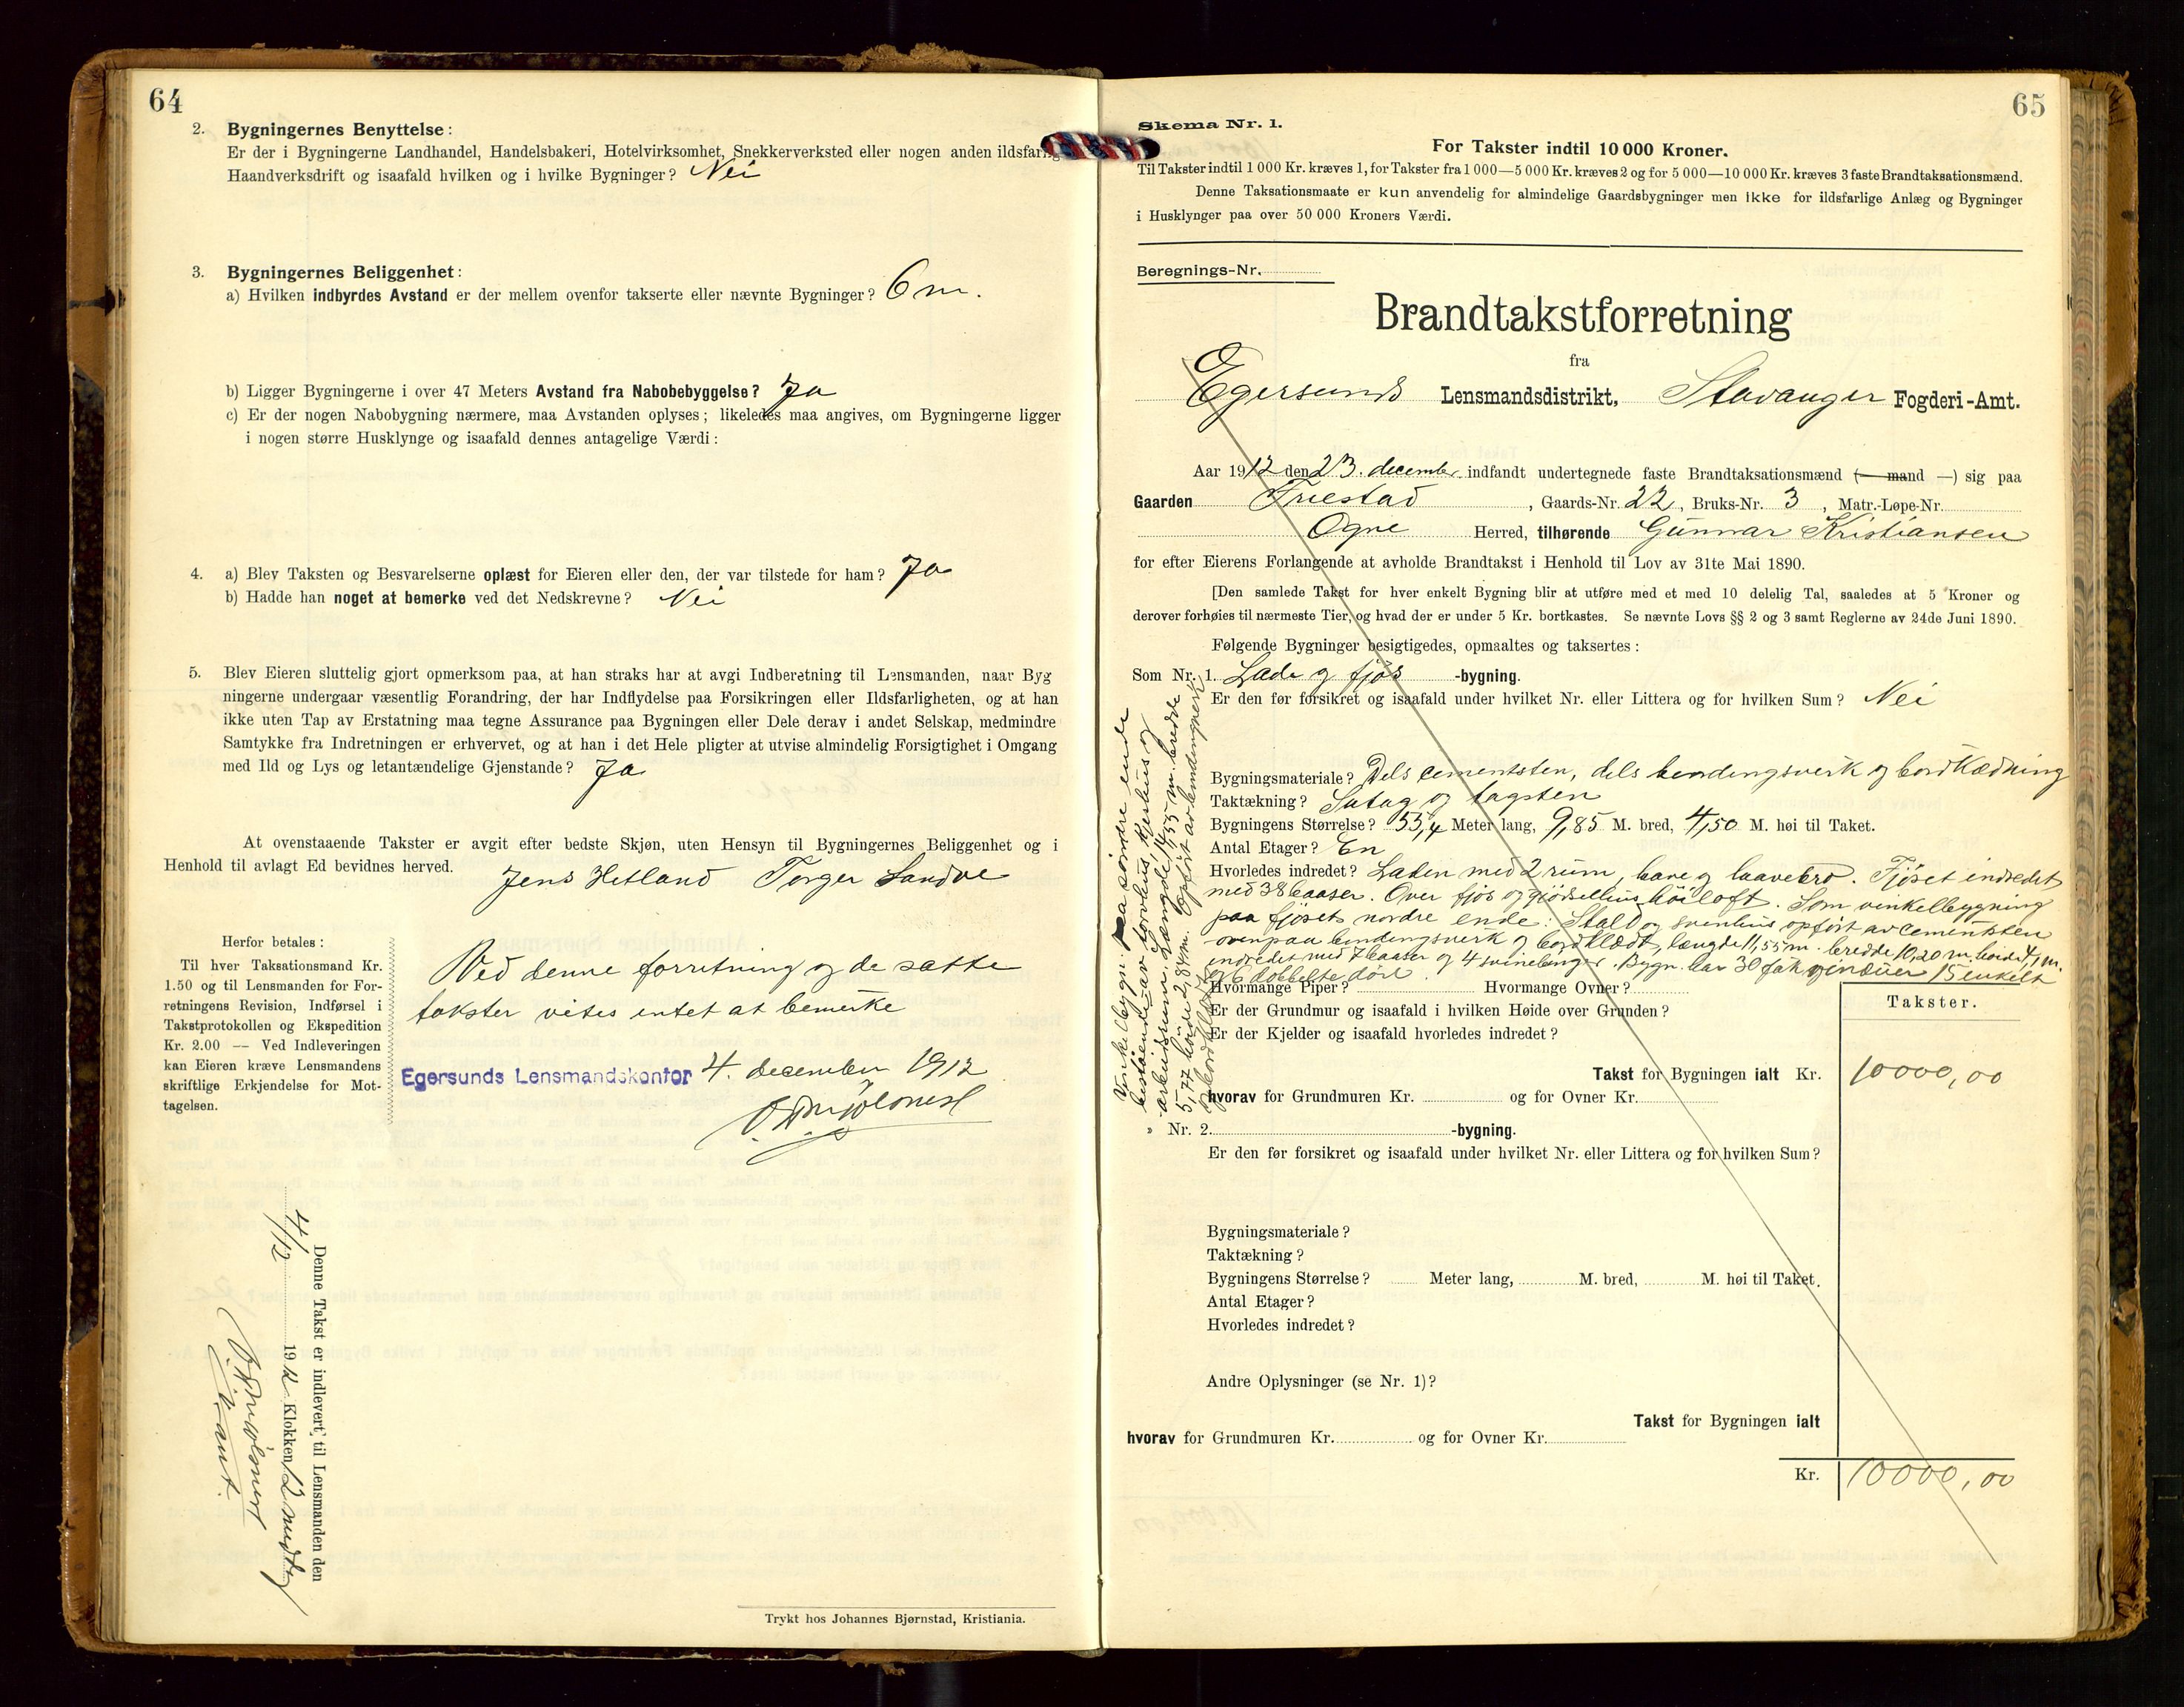 64
2. Bygningernes Benyttelse:
Er der i Bygningerne Landhandel, Handelsbakeri, Hotelvirksomhet, Snekkerverksted eller nogen anden ildsfarlig
Haandverksdrift og isaafald hvilken og i hvilke Bygninger? Nei
3. Bygningernes Beliggenhet:
a) Hvilken indbyrdes Avstand er der mellem ovenfor takserte eller nævnte Bygninger? 6 m.
b) Ligger Bygningerne i over 47 Meters Avstand fra Nabobebyggelse? Ja
c) Er der nogen Nabobygning nærmere, maa Avstanden oplyses; likeledes maa angives, om Bygningerne ligger
i nogen større Husklynge og isaafald dennes antagelige Værdi:
4. a) Blev Taksten og Besvarelserne oplæst for Eieren eller den, der var tilstede for ham? Ja
b) Hadde han noget at bemerke ved det Nedskrevne? Nei
5. Blev Eieren sluttelig gjort opmerksom paa, at han straks har at avgi Indberetning til Lensmanden, naar Byg
ningerne undergaar væsentlig Forandring, der har Indflydelse paa Forsikringen eller Ildsfarligheten, og at han
ikke uten Tap av Erstatning maa tegne Assurance paa Bygningen eller Dele derav i andet Selskap, medmindre
Samtykke fra Indretningen er erhvervet, og at han i det Hele pligter at utvise almindelig Forsigtighet i Omgang
med Ild og Lys og letantændelige Gjenstande? Ja
At ovenstaaende Takster er avgit efter bedste Skjøn, uten Hensyn til Bygningernes Beliggenhet og i
Henhold til avlagt Ed bevidnes herved. Jens Hetland Torger Sandve
Herfor betales:
Til hver Taksationsmand Kr.
1.50 og til Lensmanden for For-
retningens Revision, Indførsel i
Takstprotokollen og Ekspedition
Kr. 2.00 — Ved Indleveringen
kan Eieren kræve Lensmandens
skriftlige Erkjendelse for Mot-
tagelsen.
Ved denne forretning og de satte
takster vites intet at bemerke
Egersunds Lensmandskontor 4. december 1912
Denne Takst er indlevert til Lensmanden den
4/12 1912 Klokken 12 middag
Trykt hos Johannes Bjørnstad, Kristiania.
65
Skema Nr. 1.
For Takster indtil 10 000 Kroner.
Til Takster indtil 1 000 Kr. kræves 1, for Takster fra 1 000—5 000 Kr. kræves 2 og for 5 000—10 000 Kr. kræves 3 faste Brandtaksationsmænd.
Denne Taksationsmaate er kun anvendelig for almindelige Gaardsbygninger men ikke for ildsfarlige Anlæg og Bygninger
i Husklynger paa over 50 000 Kroners Værdi.
Beregnings-Nr.
Brandtakstforretning
fra
Egersund Lensmandsdistrikt, Stavanger Fogderi-Amt.
Aar 1912 den 23. december indfandt undertegnede faste Brandtaksationsmænd (— mand —) sig paa
Gaarden Fuestad, Gaards-Nr. 22, Bruks-Nr. 3, Matr.-Løpe-Nr.
Ogne Herred, tilhørende Gunnar Kristiansen
for efter Eierens Forlangende at avholde Brandtakst i Henhold til Lov av 31te Mai 1890.
[Den samlede Takst for hver enkelt Bygning blir at utføre med et med 10 delelig Tal, saaledes at 5 Kroner og
derover forhøies til nærmeste Tier, og hvad der er under 5 Kr. bortkastes. Se nævnte Lovs §§ 2 og 3 samt Reglerne av 24de Juni 1890.
Følgende Bygninger besigtigedes, opmaaltes og taksertes:
Som Nr. 1. Lade og fjøs -bygning.
Er den før forsikret og isaafald under hvilket Nr. eller Littera og for hvilken Sum? Nei
Bygningsmateriale? Dels cementsten, dels bindingsverk og bordklædning
Taktækning? Sutag og tagsten
Bygningens Størrelse? 55,4 Meter lang, 9,85 M. bred, 4,50 M. høi til Taket.
Antal Etager? En
Hvorledes indredet? Laden med 2 rum, lave og laavebro. Fjøset indredet
med 38 baaser. Over fjøs og gjødselhus høiloft. Som vinkelbygning
paa fjøsets nordre ende: Stald og svinhus opført av cementsten
ovenpaa bindingsverk og bordklædt, længde 11,55 m. bredde 10,20 m. høide 4,1 m.
indredet med 7 baaser og 4 svinebinger. Bygn. har 30 fak vinduer 15 enkelt
og 6 dobbelte døre.
Vinkelbygn. paa søndre ende
bestaaende av torvhus, kjelhus og
arbeidsrum. Længde 14,55 m. bredde
5,77 høide 2,84 m. Opført av bindingverk
og bordklædt
Hvormange Piper? Hvormange Ovner?
Er der Grundmur og isaafald i hvilken Høide over Grunden?
Er der Kjelder og isaafald hvorledes indredet?
Takster.
Takst for Bygningen ialt Kr. 10000,00
hvorav for Grundmuren Kr. og for Ovner Kr.
» Nr. 2. -bygning.
Er den før forsikret og isaafald under hvilket Nr. eller Littera og for hvilken Sum?
Bygningsmateriale?
Taktækning?
Bygningens Størrelse? Meter lang, M. bred, M. høi til Taket.
Antal Etager?
Hvorledes indredet?
Andre Oplysninger (se Nr. 1)?
Takst for Bygningen ialt
hvorav for Grundmuren Kr. og for Ovner Kr.
Kr. 10000,00